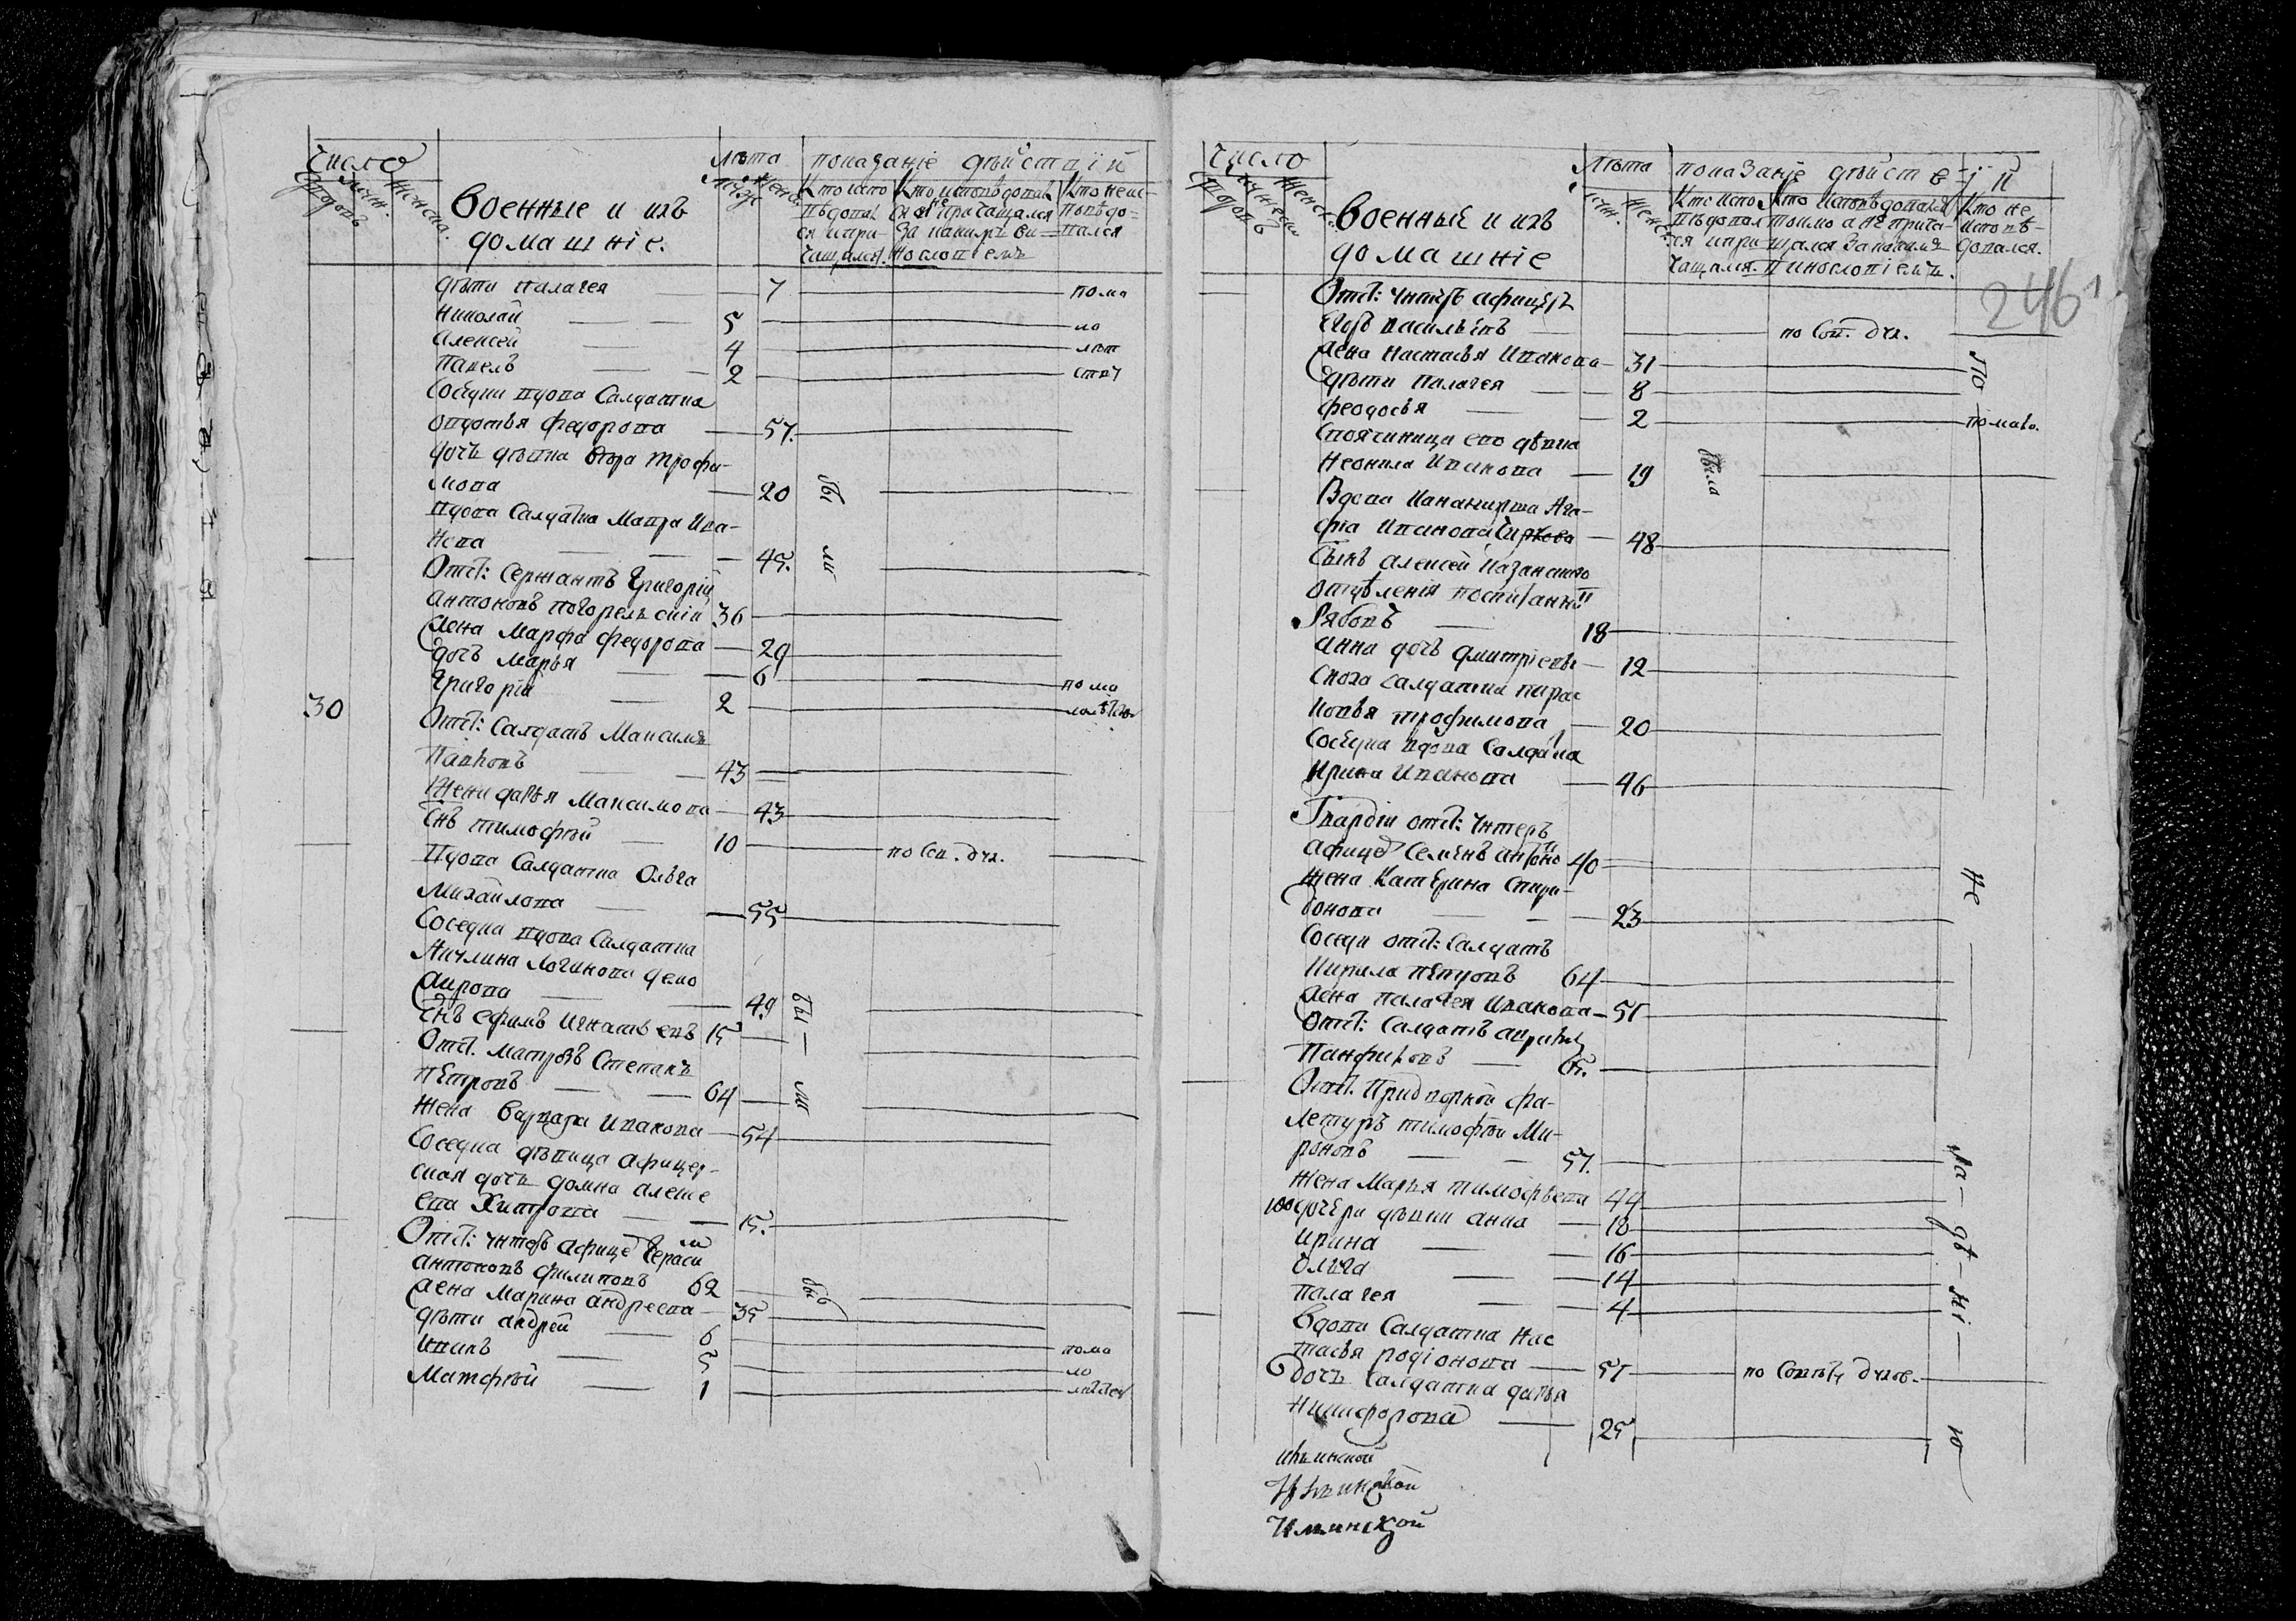 Число
дворовъ
мужн.
женска.
Военные и ихъ
домашніе.
Лѣта
мужс
женс.
показаніе дѣйствій
Кто испо
вѣдовал
ся и при
чащался.
Кто исповѣдовал
ся а не причащался
за какимъ ви=
нословіемъ
Кто не ис=
повѣдо=
вался
дѣти Палагея 7 по ма
Николай 5 ло
Алексей 4 лѣт
Павелъ 2 ству
Соседки вдова Салдатка
Овдотья Федорова 57.
дочь девка Вера Трофи-
мова 20 бы
вдова Салдатка Мавра Ива-
нова 45. ли
Отст: Сержантъ Григорій
Антоновъ Погорельскій 36
Жена Марфа Федорова 29
дочь Марья 6 по ма
Григорій 2 лолѣтс.
30 Отст: Салдатъ Максимъ
Павловъ 43
Жена дарья Максимова 43
Снъ Тимофѣй 10 по Сов. дух.
Вдова Салдатка Ольга
Михайлова 55
Соседка вдова Салдатка
Акулина Логинова
49 бы
Снъ Ефимъ Игнатьевъ 15
Отст. матрозъ Степанъ
Петровъ 64 ли
Жена Варвара Иванова 54
Соседка дѣвица афицер-
ская дочь домна алексе
ева Хитрова 15.
Отст: унтеръ афице Герасим
антоновъ филиповъ 62 бы
Жена Марина андреева 35
дѣти андрей 6
Иванъ 5 по ма
Матфѣй 1 ло
Число
дворовъ
мужеск
женск.
Военные и ихъ
домашніе
Лѣта
мужс.
женск.
показаніе действій
Кто испо
вѣдовал
ся и при
чащался.
Кто исповѣдовался
токмо а не прича-
щался за какимъ
винословіемъ.
Кто не
исповѣ-
довался.
246
Отст: унтеръ афицеръ
Егоръ Васильевъ по Сов. дух.
Жена Настасья Иванова 31 по
дѣти Палагея 8
Феодосья 2 по мало.
Своячиница ево дѣвка
Неонила Иванова 19 была
Вдова Кананирша Ага-
фia Иванова 48
Сынъ алексей Казанскаго
Рябовъ 18
Анна дочь дмитріева 12
Сноха салдатка Парас
ковья Трофимова 20
Соседка вдова Салдатка
Ирина Иванова 46
Гвардіи отст: унтеръ
афице Семенъ антоно 40 не
Жена Катерина Спири-
донова 23
Соседи отст: Салдатъ
Кирила Петровъ 64
Жена Палагея Иванова 51
Отст: Салдатъ
Панфиловъ
Отст. Придворной фа-
летуръ тимофѣй Ми-
роновъ 57.
Жена Марья тимофѣева 44
100 дочери дѣвки анна 18
Ирина 16
Ольга 14
Палагея 4
Вдова Салдатка Нас
тасья родіонова 51 по Совѣт. духов.
дочь Салдатка дарья
Никифорова 25
Ильинской
Ильинской
Ильинской